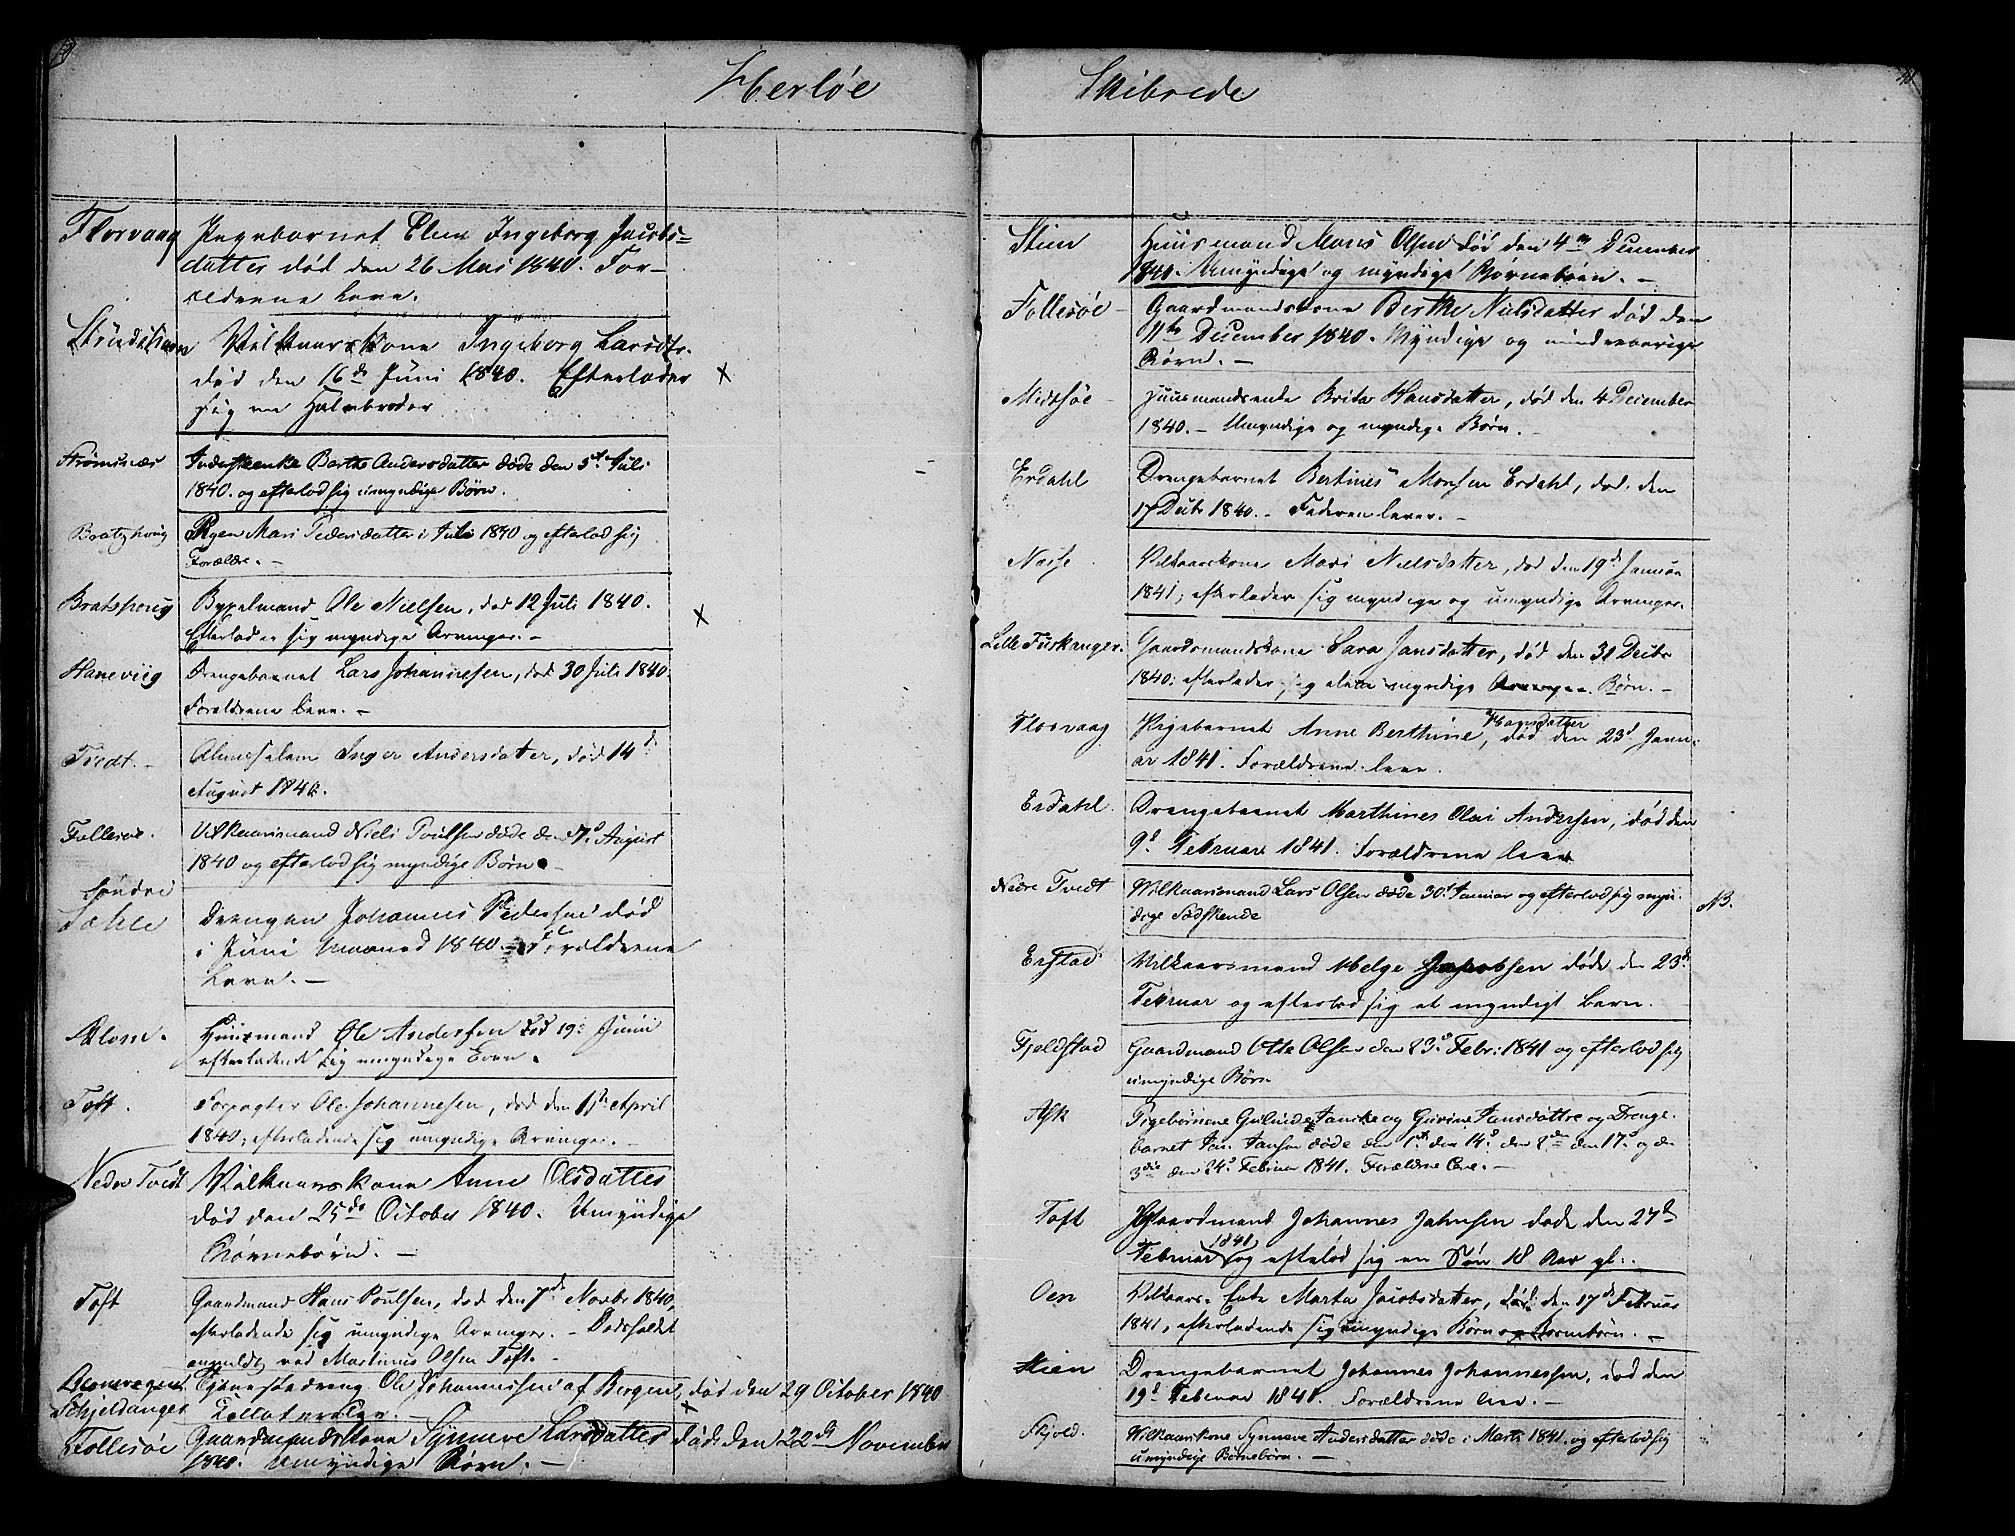 Herløe
Florvaag Pigebarnet Elen Ingeborg Jacobs=
datter død den 26 Mai 1840. For-
ældrene leve.
Vilkaarskone Ingeborg Larsdtr.
død den 16de Juni 1840. Efterlader X
sig en Halvbroder
Strømsnæs Inderstenke Berthe Andersdatter døde den 5t Juli
1840. og efterlod sig umyndige Børn.
Bratshoug Pigen Mari Pedersdatter i Juli 1840 og efterlod sig
Forældre. -
Bratshoug Ole Nielsen, død 12 Juli 1840. X
Efterlader sig myndige Arvinger. -
Haneviig Drengebarnet Lars Johannesen, død 30 Juli 1840.
Forældrene leve. -
Tvedt. - Almisselem Inger Andersdatter, død 14d
August 1840.
Follesøe. Vilkaarsmand Niels Poulsen døde den August
1840 og efterlod sig myndige Børn -
Søndre
Sæhle Drengen Johannes Pedersen død
i Juni Maaned 1840. - Forældrene
Leve. -
Blom. Huusmand Ole Andersen død 19d Junii
efterladende sig umyndige Børn.
Toft. Forpagter Ole Johannesen, død den April
1840; efterladende sig umyndige Arvinger. -
Nedre Tvedt Vilkaarskone Anne Olsdatter
død den 25de October 1840. Umyndige
Børnebørn. -
Toft Gaardmand Hans Poulsen, død den 7de Novbr 1840,
efterladende sig umyndige Arvinger. - Dødsfaldet
anmeldt ved Martinus Olsen Toft. -
Tjenestedreng Ole Johannesen af Bergen, død den 29 October 1840
Schjeldanger
Follesøe Gaardmandskone Synneve Larsdatter død den 22de November
1840. Umyndige Børn. -
Skibrede
41
Stien Huusmand Mons Olsen død den 4de December
1840. Umyndige og myndige Børnebørn. -
Follesøe - Gaardmandskone Berthe Nielsdatter død den
11te December 1840. Myndige og mindreaarige
Børn. -
Midtsøe - Huusmandsenke Brita Hansdatter, død den 4 December
1840. - Umyndige og myndige Børn. -
Erdahl Drengebarnet Bertines Monsen Erdahl, død den
17 Decbr 1840. - Faderen lever. -
Nesse Vilkaarskone Mari Nielsdatter, død den 19de Januar
1841; efterlader sig myndige og umyndige Arvinger.
Lille Turkanger. Gaardmandskone Sara Jansdatter, død den 31 Decbr
1840. efterlader sig alene myndige Arvinger. Børn. -
Florvaag Pigebarnet Anne Berthine Hansdatter, død den 23d Janu-
ar 1841. Forældrene leve.
Erdahl. Drengebarnet Marthines Olai Andersen, død den
9d Februar 1841. Forældrene leve
Nedre Tvedt Vilkaarsmand Lars Olsen døde 30te Januar og efterlod sig myn- NB.
dige Sødskende
Erstad Vilkaarsmand Helge Jacobsen døde den 23d
Februar og efterlod sig et myndigt barn.
Fjeldstad Gaardmand Otte Olsen den 23d Febr: 1841 og efterlod sig
umyndige Børn
Ask Pigebørnene Gulinde Janike og Gurine Jansdøttre og Drenge-
barnet Jan Jansen døde den 1ste den 14d den 2den den 17d og den
3die den 24d Februar 1841. Forældrene leve. -
Toft Gaardmand Johannes Johnsen døde den 27d
Februar 1841 og efterlod sig en Søn 18 Aar gl.
Oen Vilkaars-Enke Marta Jacobsdatter, død den 17de Februar
1841, efterladende sig myndige Børn og Børnebørn. -
Stien Drengebarnet Johannes Johannessen, død den
19d Februar 1841. Forældrene leve. -
Skjold. Vilkaarskone Synneve Andersdatter døde i Marts 1841 og efterlod sig
umyndige Børnebørn. -